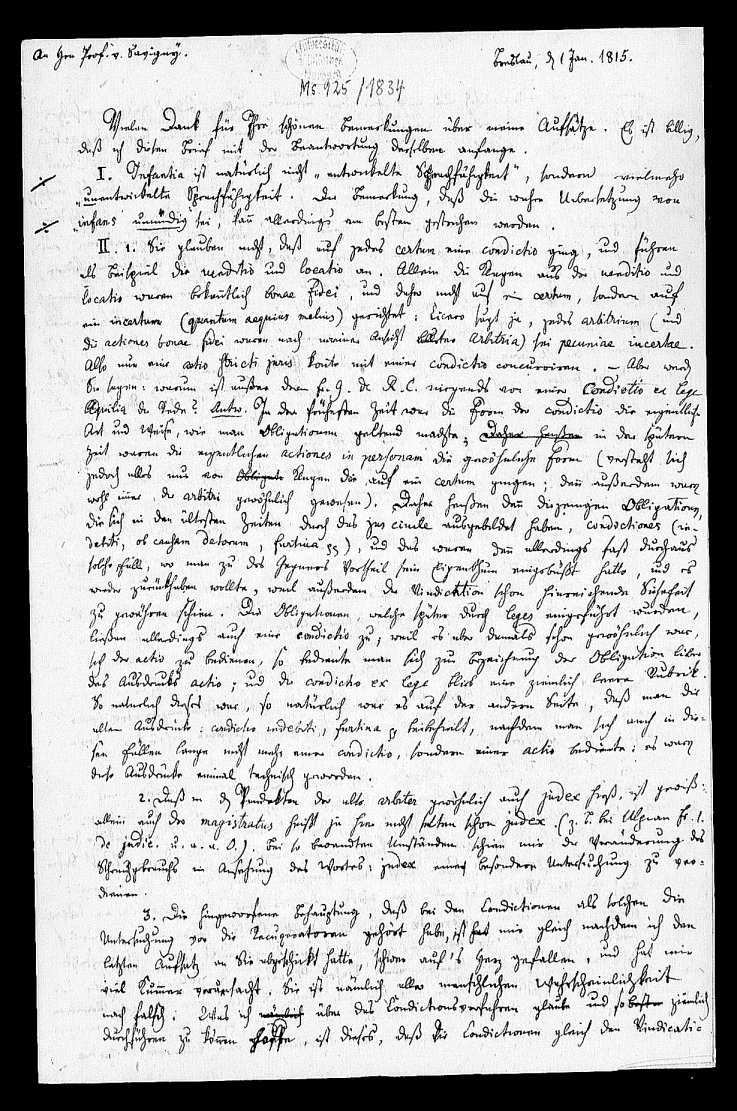 An Hrn Prof. v. Savigny.
Breslau, d 1 Jan. 1815.
Ms 925/1834
Vielen Dank für Ihre schönen Bemerkungen über meine Aufsätze. Es ist billig,
daß ich diesen Brief mit der Beantwortung derselben anfange.
I. Infantia ist natürlich nicht „entwickelte Sprachfähigkeit", sondern vielmehr
„unentwickelte Sprachfähigkeit. Die Bemerkung, daß die wahre Uebersetzung von
„infans" unmündig sei, kann allerdings am besten gestrichen werden.
II. 1. Sie glauben nicht, daß auf jedes certum eine condictio ging, und führen
als Beispiel die venditio und locatio an. Allein die Klagen aus der venditio und
locatio waren bekanntlich bonae fidei, und daher nicht auf ein certum, sondern auf
ein incertum (quantum aequius melius) gerichtet: Cicero sagt ja, jedes arbitrium (und
die actiones bonae fidei waren nach meiner Ansicht arbitria) sei pecuniae incertae.
Also nur eine actio stricti juris konnte mit einer condictio concurriren. – Aber werden
Sie sagen: warum ist außer dem fr. 9. de R. C. nirgends von einer Condictio ex lege
Aquilia die Rede? Antw. In der frühesten Zeit war die Form der Condictio die eigentliche
Art und Weise, wie man Obligationen geltend machte; Daher heißen in der spätern
Zeit waren die eigentlichen actiones in personam die gewöhnliche Form (versteht sich
jedoch alles nur von Obligat Klagen die auf ein certum gingen; denn außerdem waren
wohl immer die arbitri gewöhnlich gewesen). Daher heißen denn diejenigen Obligationen,
die sich in den ältesten Zeiten durch das jus civile ausgebildet haben, condictiones (in-
debiti, ob causam datorum, furtiva), und das waren denn allerdings fast durchaus
solche Fälle, wo man zu des Gegners Vortheil sein Eigenthum eingebüßt hatte, und es
wieder zurückhaben wollte, weil außerdem die Vindication schon hinreichende Sicherheit
zu gewähren schien. Die Obligationen, welche später durch leges eingeführt wurden,
ließen allerdings auch eine condictio zu; weil es aber damals schon gewöhnlich war,
sich der actio zu bedienen, so bediente man sich zur Bezeichnung der Obligation lieber
des Ausdrucks actio; und die condictio ex lege blieb eine ziemlich leere Rubrik.
So natürlich dieses war, so natürlich war es auf der andern Seite, daß man die
alten Ausdrücke: condictio indebiti, furtiva beibehielt, nachdem man sich auch in die-
sen Fällen lange nicht mehr einer condictio, sondern einer actio bediente: es waren
diese Ausdrücke einmal technisch geworden.
2. Daß in d Pandekten der alte arbiter gewöhnlich auch judex heißt, ist gewiß:
allein auch der magistratus heißt ja hier nicht selten schon judex (z. B. bei Ulpian fr. 1.
de judic. u. a. a. O.). Bei so bewandten Umständen schien mir die Veränderung des
Sprachgebrauchs in Ansehung des Wortes: judex einer besondern Untersuchung zu ver-
dienen.
3. Die hingeworfene Behauptung, daß bei den Condictionen als solchen die
Untersuchung vor die Recuperatoren gehört habe, ist hat mir gleich nachdem ich den
letzten Aufsatz an Sie abgeschickt hatte, schwer auf's Herz gefallen, und hat mir
viel Kummer verursacht. Sie ist nämlich aller menschlichen Wahrscheinlichkeit
nach falsch: Was ich nämlich über das Condictionsverfahren glaube und so besser ziemlich
durchführen zu können hoffe, ist dieses, daß die Condictionen gleich den Vindicatio